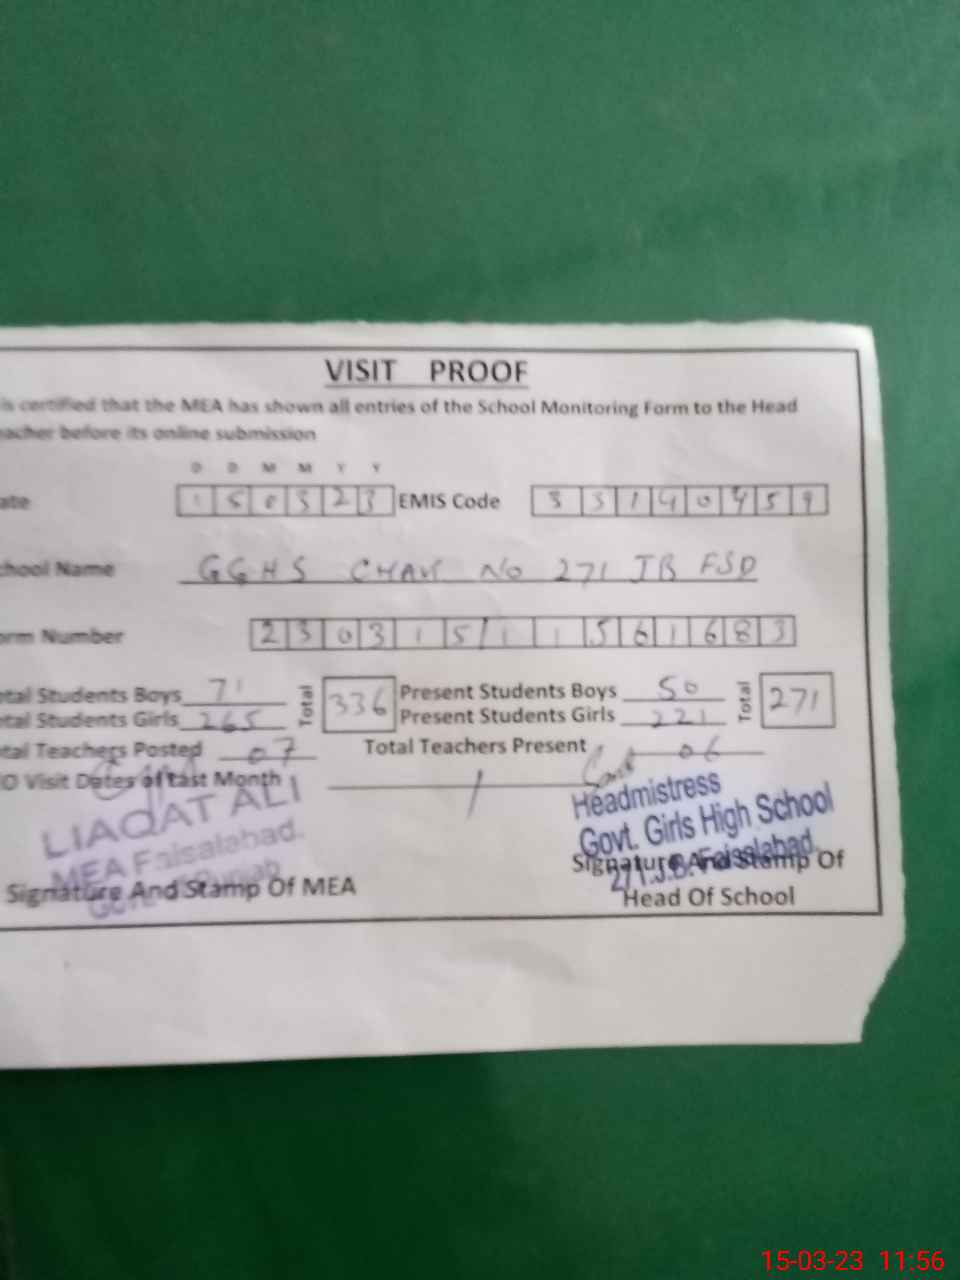 VISIT PROOF
is certified that the MEA has shown all entries of the School Monitoring Form to the Head
eacher before its online submission
D D M M Y Y
ate 150323 EMIS Code 33140459
chool Name GGHS CHAK NO 271 JB FSD
orm Number 23031511561683
otal Students Boys 71 Total 336 Present Students Boys 50 Total 271
otal Students Girls 265 Present Students Girls 221
otal Teachers Posted 07 Total Teachers Present 06
O Visit Dates of Last Month /
LIAQAT ALI
MEA Faisalabad.
Govt. Punjab
Signature And Stamp Of MEA
Headmistress
Govt. Girls High School
271 J.B. Faisalabad.
Signature And Stamp Of
Head Of School
15-03-23 11:56